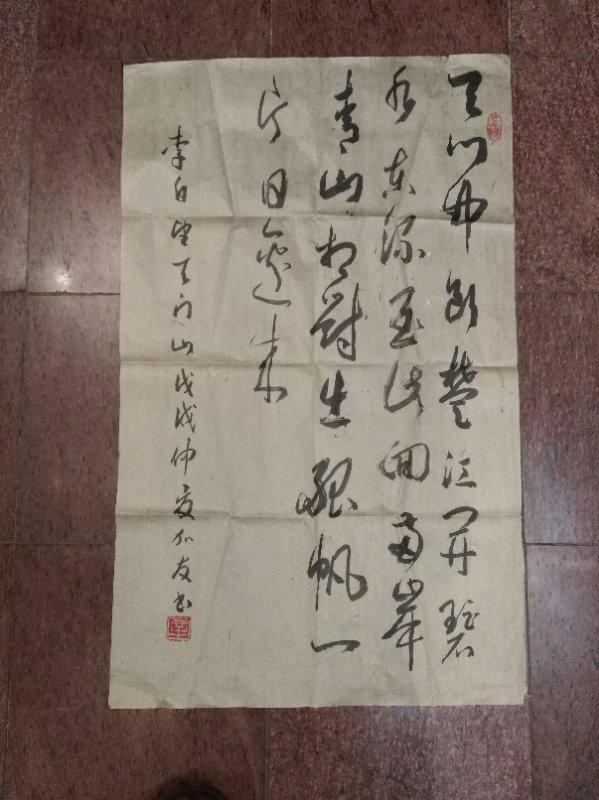 天门中断楚江开碧
水东流至此回两岸
青山相對出孤帆一
片日邊来
李白望天门山戊戌仲夏加友书